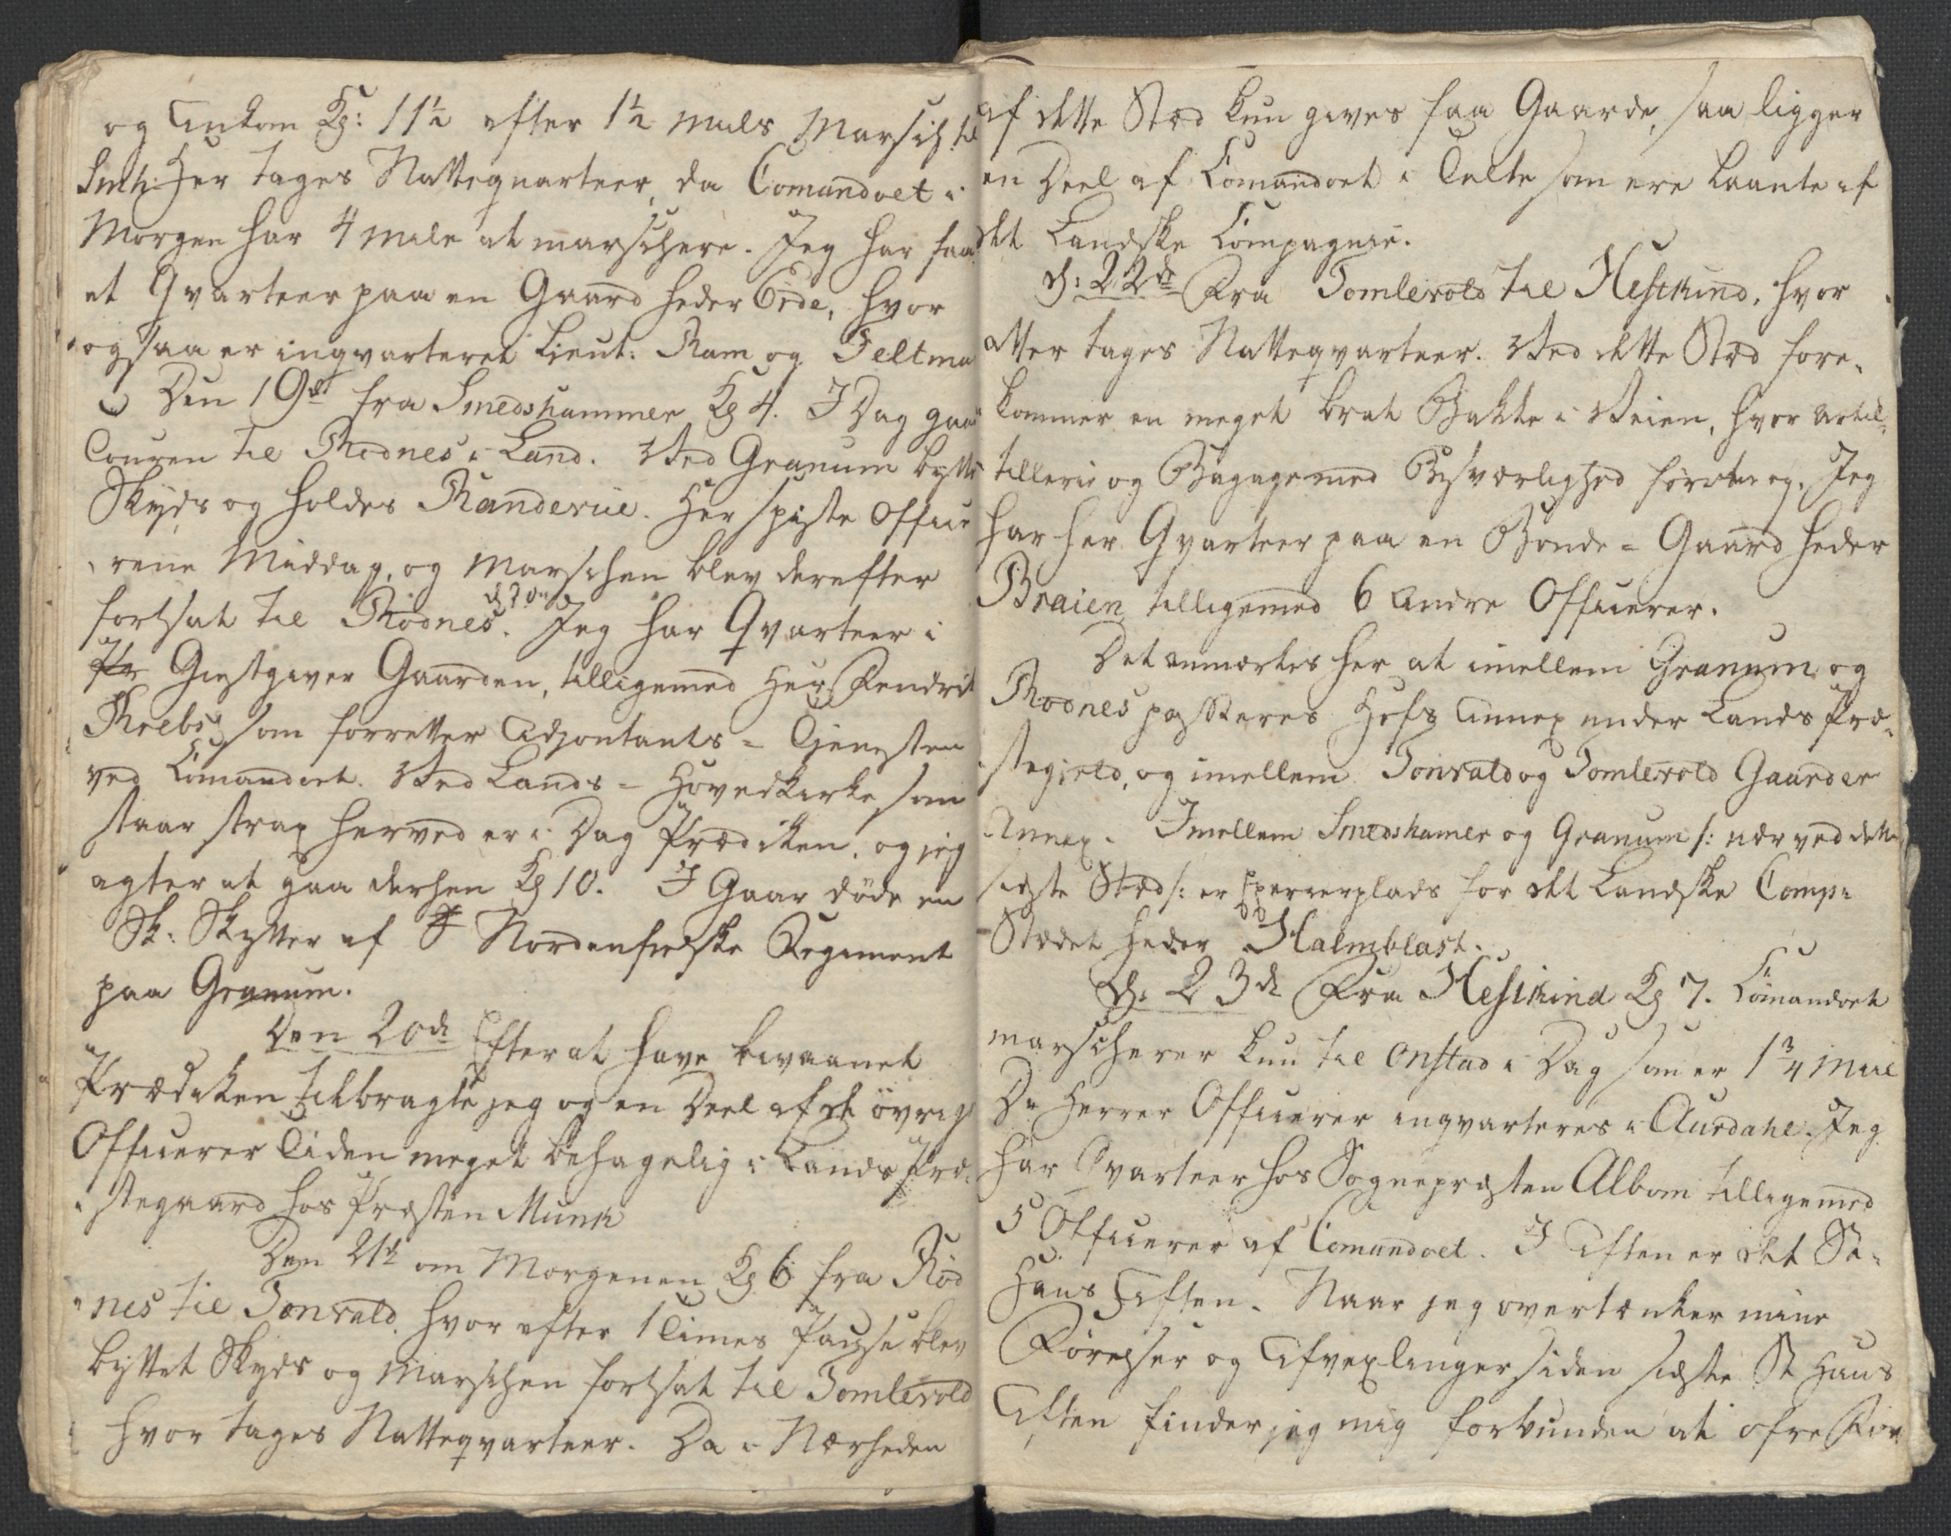 og Ankom Kl: 11½ efter 1½ Miils Marsch til
Smh: Her tages Natteqvarteer, da Comandoet i
Morgen har 4 Mile at marschere. Jeg har faaet
et Qvarteer paa en Gaard heder Orde, hvor
ogsaa er inqvarteret Lieut: Ram og Feltma
Den 19de fra Smedshammer Kl 4. I Dag gaar
Couren til Rodnes i Land. Ved Granum byttes
Skyds og holdes Randevue. Her spiste Officie
rene Middag, og Marschen blev derefter
fortsat til Rodnes. Jeg har Qvarteer i
Giestgiver Gaarden, tilligemed Her Fendrik
Krebs, som forretter Adjontants-Tjenesten
ved Comandoet. Ved Lands-Hovedkirke som
staar strax herved er i Dag Prædiken, og jeg
agter at gaa derhen Kl 10. I Gaar døde en
Sk: Skytter af Nordenfieldske Regiment
paa Granum.
Den 20de Efter at have bivaanet
Prædiken tilbragte jeg og en Deel af de øvrige
Officierer Tiden meget behagelig i Lands Præ-
stegaard hos Præsten Munk
Den 21de om Morgenen Kl 6 fra Rød
nes til Tonvald, hvor efter 1 Times Pause blev
byttet Skyds og Marschen fortsat til Tomlevold
hvor tages Natteqvarteer. Da i Nærheden
af dette Stæd kun gives faa Gaarde, saa ligger
en Deel af Comandoet i Telte som ere laante af
det Landske Compagnie.
D: 22de Fra Tomlevold til Hestkind, hvor
atter tages Natteqvarteer. Ved dette Stæd fore-
kommer en meget brat Bakke i Veien, hvor Artil-
tillerie og Bagage med Besværlighed Jeg
har her Qvarteer paa en Bonde-Gaard heder
Braien tilligemed 6 Andre Officierer.
Det anmærkes her at imellem Granum og
Rodnes passeres Hofs Annex under Lands Præ-
stegield, og imellem Tonvald og Tomlevold Gaarder
Annex. Imellem Smedshamer og Granum /: nær ved dette
sidste Stæd :/ er Exercerplads for det Landske Comp:
Stædet heder Halmblast.
D: 23de Fra Hestkind Kl 7. Comandoet
marscherer kun til Onstad i Dag som er 1¾ Miil
De Herrer Officierer inqvarteres i Aurdahl. Jeg
har Qvarteer hos Sognepræsten Albom tilligemed
5 Officierer af Comandoet. I Aften er det St:
Hans Aften. Naar jeg overtænker mine
Førelser og Afvexlinger siden sidste St Hans
Aften finder jeg mig forbunden at ofre For